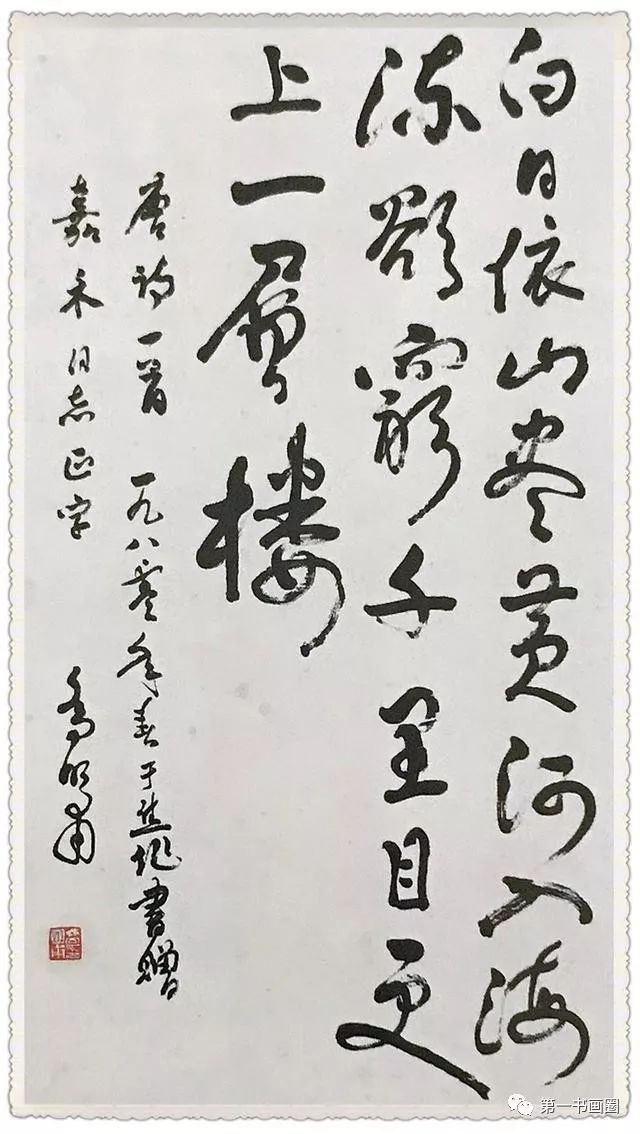 白日依山尽黄河入海
流欲窮千里目更
上一層楼
唐诗一首 一九八零年春于焦作書赠
嘉禾同志正字 乔明甫
第一书画圈